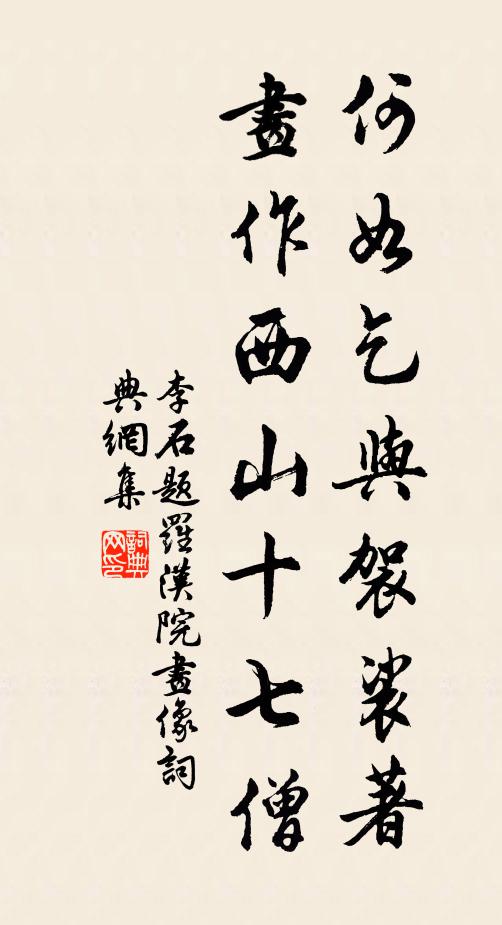 何如乞與袈裟著
畫作西山十七僧
李石題羅漢院畫像詞
典網集
詞典
网印